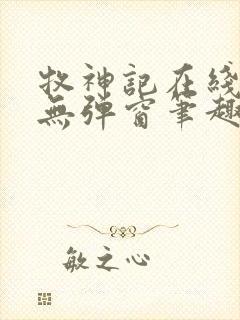 牧神記在綫
無彈窗筆趣
敏之心